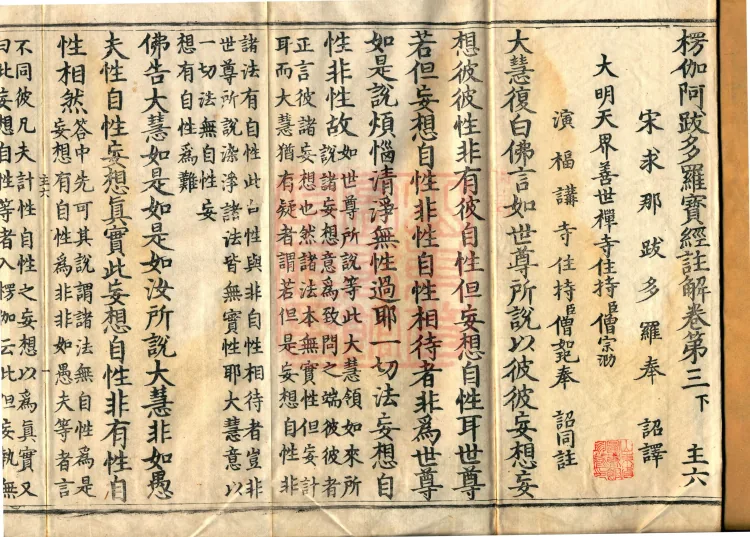 楞伽阿跋多羅寶經註解卷第三下 主六
宋求那跋多羅奉 詔譯
大明天界善世禪寺住持臣僧宗泐
演福講寺住持臣僧如玘奉 詔同註
大慧復白佛言如世尊所說以彼彼妄想妄
想彼彼性非有彼自性但妄想自性耳世尊
若但妄想自性非性自性相待者非為世尊
如是說煩惱清淨無性過耶一切法妄想自
性非性故
如世尊所說等此大慧領如來所
說諸妄想意為致問之端彼彼者
正言彼諸妄想也然諸法本無實性但妄計
耳而大慧猶有疑者謂若但是妄想自性非
諸法有自性此自性與非自性相待者豈非
世尊所說染淨諸法皆無實性耶大慧意以
一切法無自性妄
想有自性為難
佛告大慧如是如是如汝所說大慧非如愚
夫性自性妄想眞實此妄想自性非有性自
性相然
答中先可其說謂諸法無自性為是
妄想有自性為非非如愚夫等者言
主六 一
不同彼凡夫計性自性之妄想以為眞實又
曰此妄想自性等者入楞伽云此但妄執無